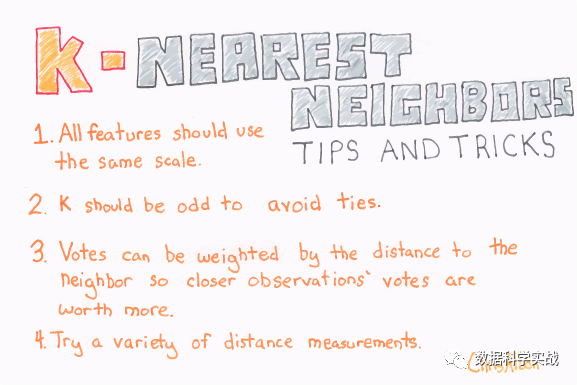 K-NEAREST
NEIGHBORS
TIPS AND TRICKS
1. All features should use
the same scale.
2. K should be odd to avoid ties.
3. Votes can be weighted by the distance to the
neighbor so closer observations' votes are
worth more.
4. Try a variety of distance measurements.
数据科学实战